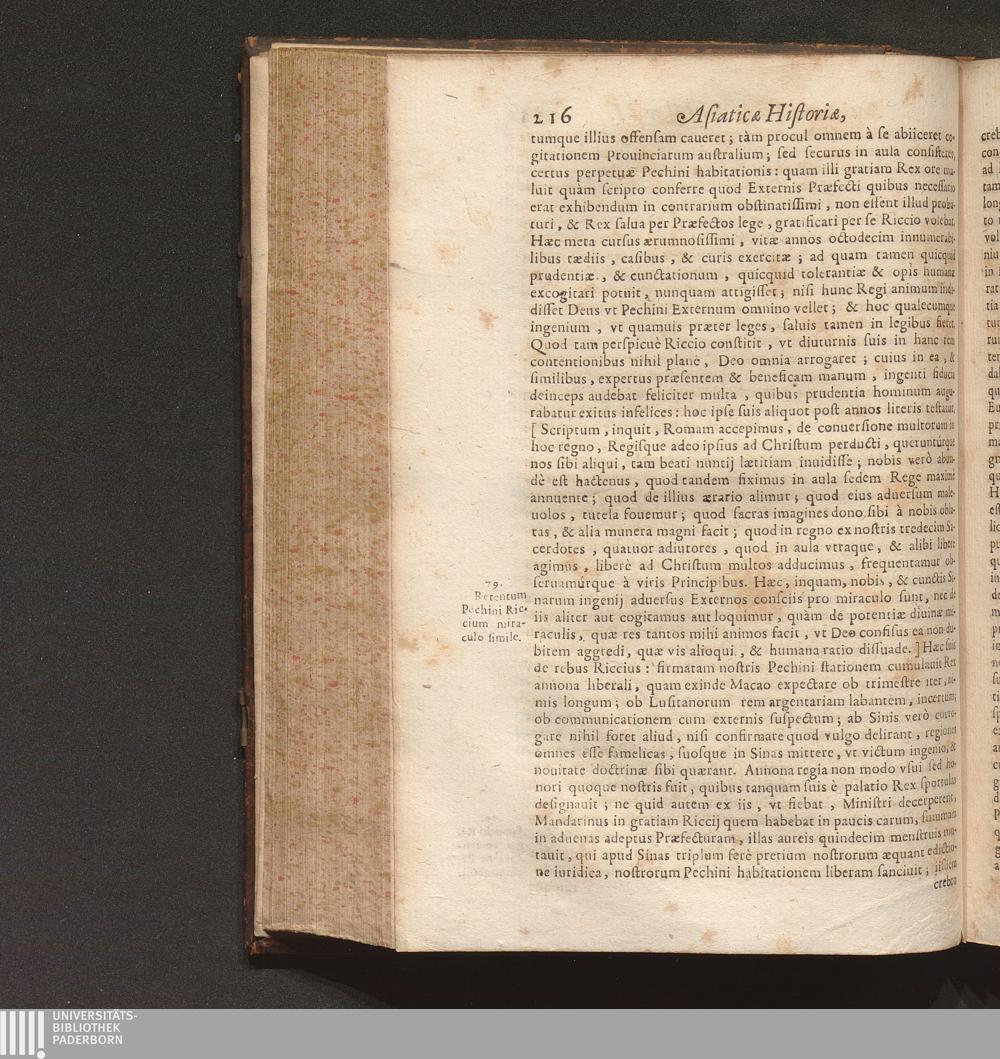 216 Asiaticæ Historiæ,
tumque illius offensam caueret; tàm procul omnem à se abiiceret co-
gitationem Prouinciarum australium; sed securus in aula consisteret,
certus perpetuæ Pechini habitationis: quam illi gratiam Rex ore ma-
luit quàm scripto conferre quod Externis Præfecti quibus necessario
erat exhibendum in contrarium obstinatissimi, non essent illud proba-
turi, & Rex salua per Præfectos lege, gratificari per se Riccio volebat.
Hæc meta cursus ærumnosissimi, vitæ annos octodecim innumerabi-
libus tædiis, casibus, & curis exercitæ; ad quam tamen quicquid
prudentiæ, & cunctationum, quicquid tolerantiæ & opis humanæ
excogitari potuit, nunquam attigisset; nisi hunc Regi animum indi-
disset Deus vt Pechini Externum omnino vellet; & hoc qualecumque
ingenium, vt quamuis præter leges, saluis tamen in legibus fieret.
Quod tam perspicuè Riccio constitit, vt diuturnis suis in hanc rem
contentionibus nihil planè, Deo omnia arrogaret; cuius in ea, &
similibus, expertus præsentem & beneficam manum, ingenti fiducia
deinceps audebat feliciter multa, quibus prudentia hominum augu-
rabatur exitus infelices: hoc ipse suis aliquot post annos literis testatur.
[Scriptum, inquit, Romam accepimus, de conuersione multorum in
hoc regno, Regisque adeo ipsius ad Christum perducti, queruntúrque
nos sibi aliqui, tam beati nuntij lætitiam inuidisse; nobis verò abun-
dè est hactenus, quod tandem fiximus in aula sedem Rege maximè
annuente; quod de illius ærario alimur; quod eius aduersum male-
uolos, tutela fouemur; quod sacras imagines dono sibi à nobis obla-
tas, & alia munera magni facit; quod in regno ex nostris tredecim Sa-
cerdotes, quatuor adiutores, quod in aula vtraque, & alibi liberè
agimus, liberè ad Christum multos adducimus, frequentamur ob-
seruamúrque à viris Principibus. Hæc, inquam, nobis, & cunctis Si-
narum ingenij aduersus Externos consciis pro miraculo sunt, nec de
iis aliter aut cogitamus aut loquimur, quàm de potentiæ diuinæ mi-
raculis, quæ res tantos mihi animos facit, vt Deo confisus ea non du-
bitem aggredi, quæ vis alioqui, & humana ratio dissuade.] Hæc suis
de rebus Riccius: firmatam nostris Pechini stationem cumulauit Rex
annona liberali, quam exinde Macao expectare ob trimestre iter, ni-
mis longum; ob Lusitanorum rem argentariam labantem, incertum;
ob communicationem cum externis suspectum; ab Sinis verò corro-
gare nihil foret aliud, nisi confirmare quod vulgo delirant, regiones
omnes esse famelicas, suosque in Sinas mittere, vt victum ingenio, &
nouitate doctrinæ sibi quærant. Annona regia non modo vsui sed ho-
nori quoque nostris fuit, quibus tanquam suis è palatio Rex sportulas
designauit; ne quid autem ex iis, vt fiebat, Ministri decerperent,
Mandarinus in gratiam Riccij quem habebat in paucis carum, summam
in aduenas adeptus Præfecturam, illas aureis quindecim menstruis mu-
tauit, qui apud Sinas triplum ferè pretium nostrorum æquant edictio-
ne iuridica, nostrorum Pechini habitationem liberam sanciuit; iisdem
crebro
79.
Retentum
Pechini Ric-
cium mira-
culo simile.
UNIVERSITÄTS-
BIBLIOTHEK
PADERBORN